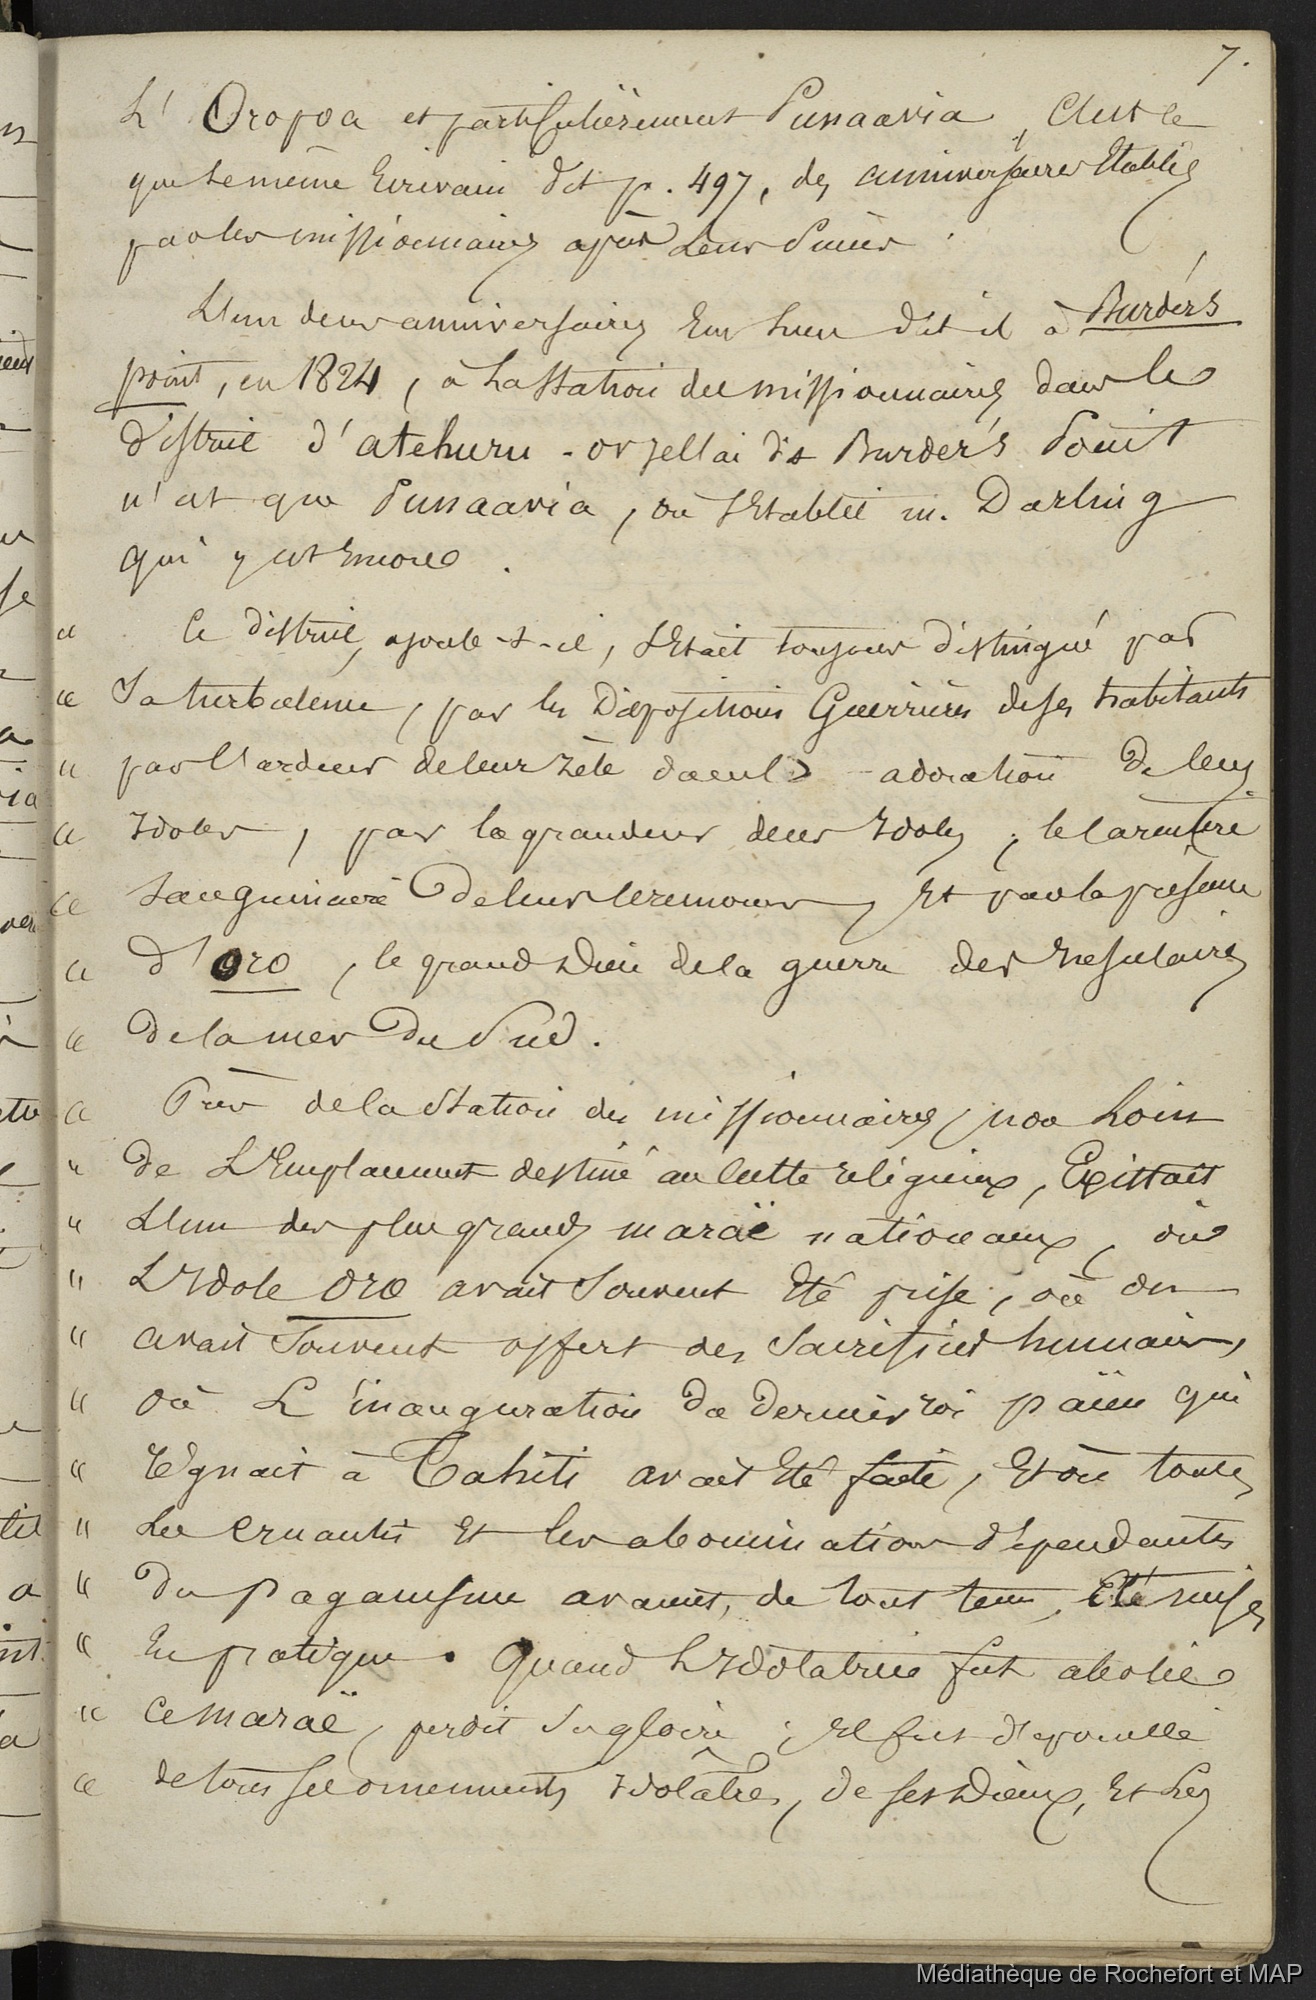 7.
L'Oropoa et particulièrement Punaavia, C'est ce
que le même Ecrivain dit p. 497, des anniversaires Etablis
par les missionnaires après leurs succès.
L'un de ces anniversaires Eut lieu dit il à Burder's
point, en 1824, à la Station des missionnaires dans le
district d'atehuru - or cellui dit Burder's Point
n'est que Punaavia, où s'Etablit m. Darling
qui y est Encore.
" Ce district, ajoute-t-il, s'Etait toujours distingué par
" Sa turbulence, par les Dispositions Guerrières de ses habitants
" par l'ardeur de leur zèle dans l'adoration De leurs
" Idoles, par la grandeur de ces Idoles, le Caractère
" Sanguinaire De leurs Ceremonies, Et par la présence
" d'oro, le grand Dieu de la guerre des Insulaires
" De la mer Du Sud.
" Près de la Station des missionnaires, non Loin
" De L'Emplacement destiné au Culte religieux, Existait
" L'un des plus grands maraë nationaux, où
" L'Idole oro avait Souvent Eté prise, où on
" avait Souvent offert des Sacrifices humains,
" Où L'inauguration Du Dernier roi païen qui
" Régnait à Tahiti avait Eté faite, Et où toutes
" Les cruautés Et les abominations dépendantes
" Du paganisme avaient, de tout tems, Eté mises
" En pratique. Quand L'Idolatrie fut abolie
" Ce maraë, perdit Sa gloire ; Il fut dépouillé
" de tous ses ornements Idolâtres, de ses Dieux, Et Les
Médiathèque de Rochefort et MAP